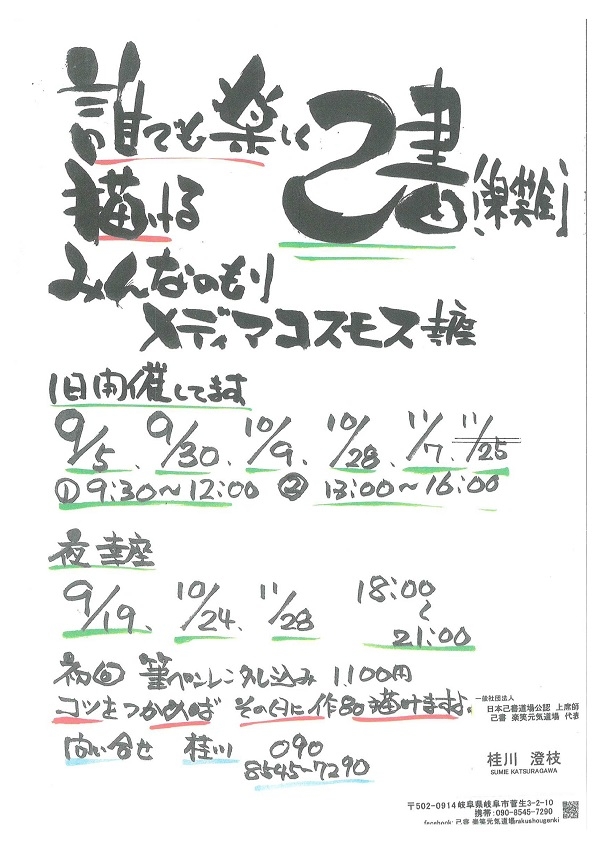 誰でも楽しく
描ける
己書
楽笑会
みんなのもり
メディアコスモス幸座
1日開催してます
9/5、9/30、10/9、10/28、11/7、11/25
①9:30〜12:00 ② 13:00〜16:00
夜幸座
9/19、10/24、11/28 18:00〜21:00
初回 筆ペンレンタル込み 1100円
コツをつかめば その日に作品描けますよ。
問い合せ 桂川 090
8545-7290
一般社団法人
日本己書道場公認 上席師
己書 楽笑元気道場 代表
桂川 澄枝
SUMIE KATSURAGAWA
〒502-0914 岐阜県岐阜市菅生3-2-10
携帯:090-8545-7290
facebook: 己書 楽笑元気道場rakushougenki